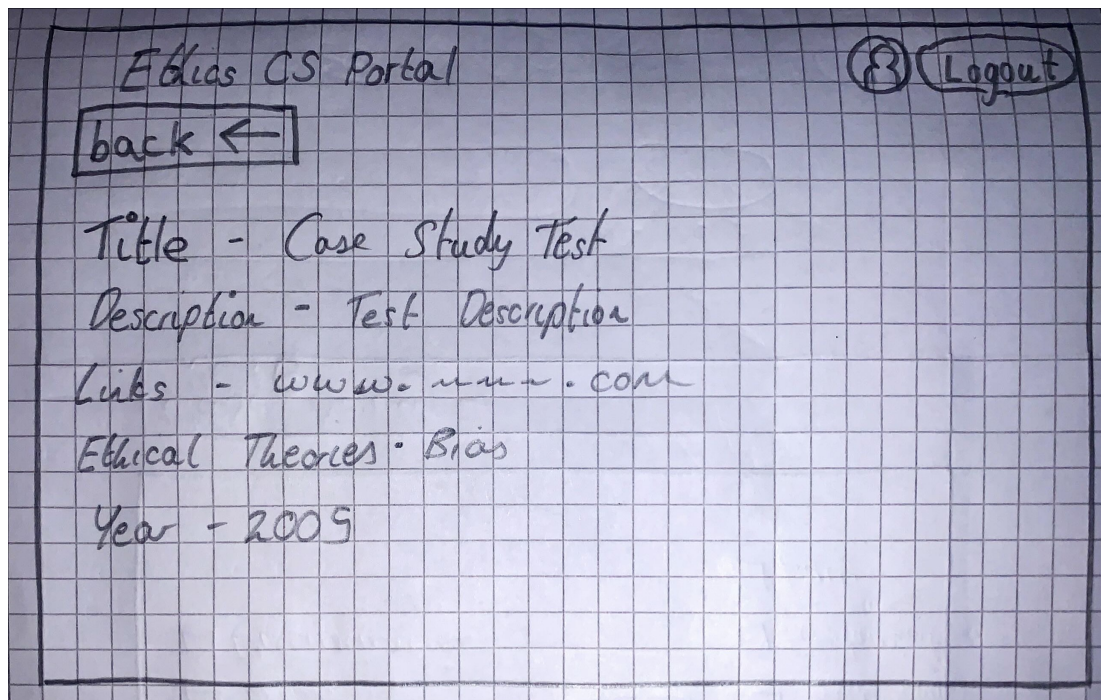 Ethics CS Portal
Logout
back ←
Title - Case Study Test
Description - Test Description
Links - www. .com
Ethical Theories - Bias
Year - 2005